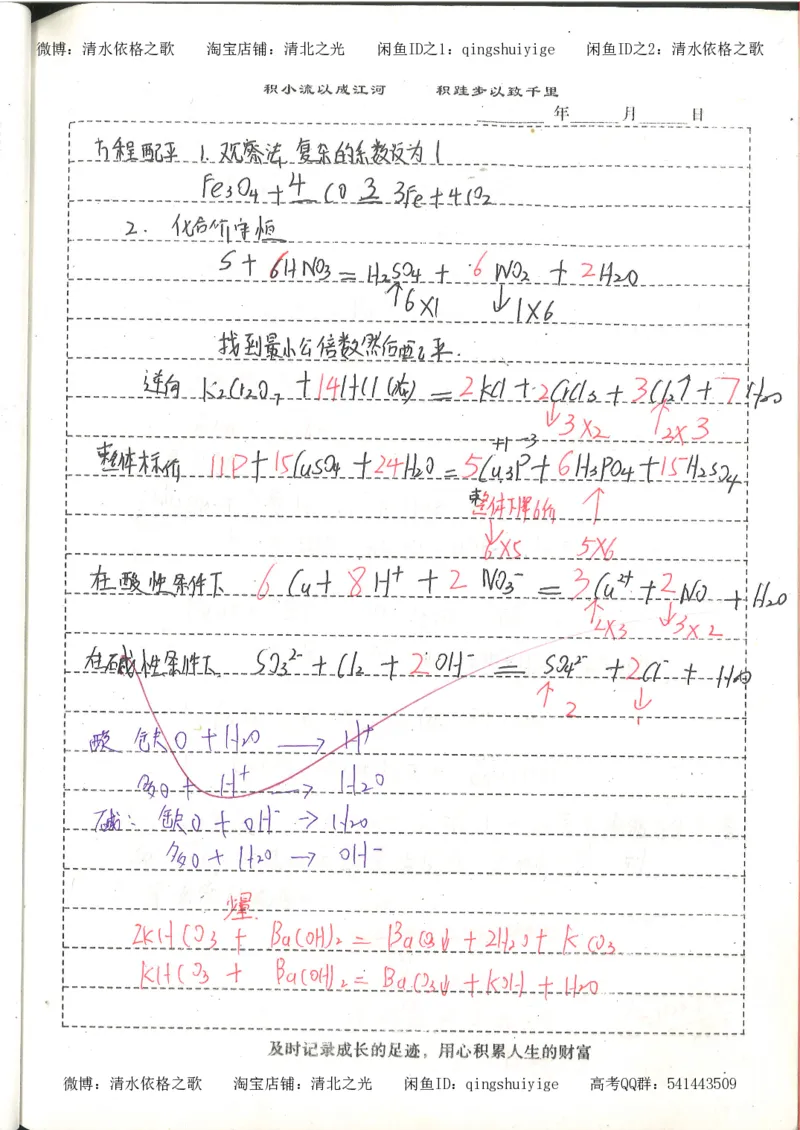 微博：清水依格之歌 淘宝店铺：清北之光 闲鱼ID之1：qingshuiyige 闲鱼ID之2：清水依格之歌
积小流以成江河 积跬步以致千里
年 月 日
方程配平 1. 观察法 复杂的系数设为1
Fe3O4 + 4 CO = 3Fe + 4CO2
2. 化合价守恒
S + 6HNO3 = H2SO4 + 6 NO2 + 2H2O
↑6×1 ↓1×6
找到最小公倍数然后配平.
逆向 K2Cr2O7 + 14HCl(浓) = 2KCl + 2CrCl3 + 3Cl2↑ + 7H2O
↓3×2 ↑2×3
+1 -3
整体标价 11P + 15CuSO4 + 24H2O = 5Cu3P + 6H3PO4 + 15H2SO4
整体下降6价 ↑
↓6×5 5×6
在酸性条件下 6 Cu + 8H+ + 2 NO3- = 3Cu2+ + 2NO + H2O
↑2×3 ↓3×2
在碱性条件下 SO3 2- + Cl2 + 2OH- = SO4 2- + 2Cl- + H2O
↑2 ↓1
酸 缺O + H2O → H+
多O + H+ → H2O
碱: 缺O + OH- → H2O
多O + H2O → OH-
少量.
2KHCO3 + Ba(OH)2 = BaCO3↓ + 2H2O + K CO3
KHCO3 + Ba(OH)2 = BaCO3↓ + KOH + H2O
及时记录成长的足迹，用心积累人生的财富
微博：清水依格之歌 淘宝店铺：清北之光 闲鱼ID：qingshuiyige 高考QQ群：541443509